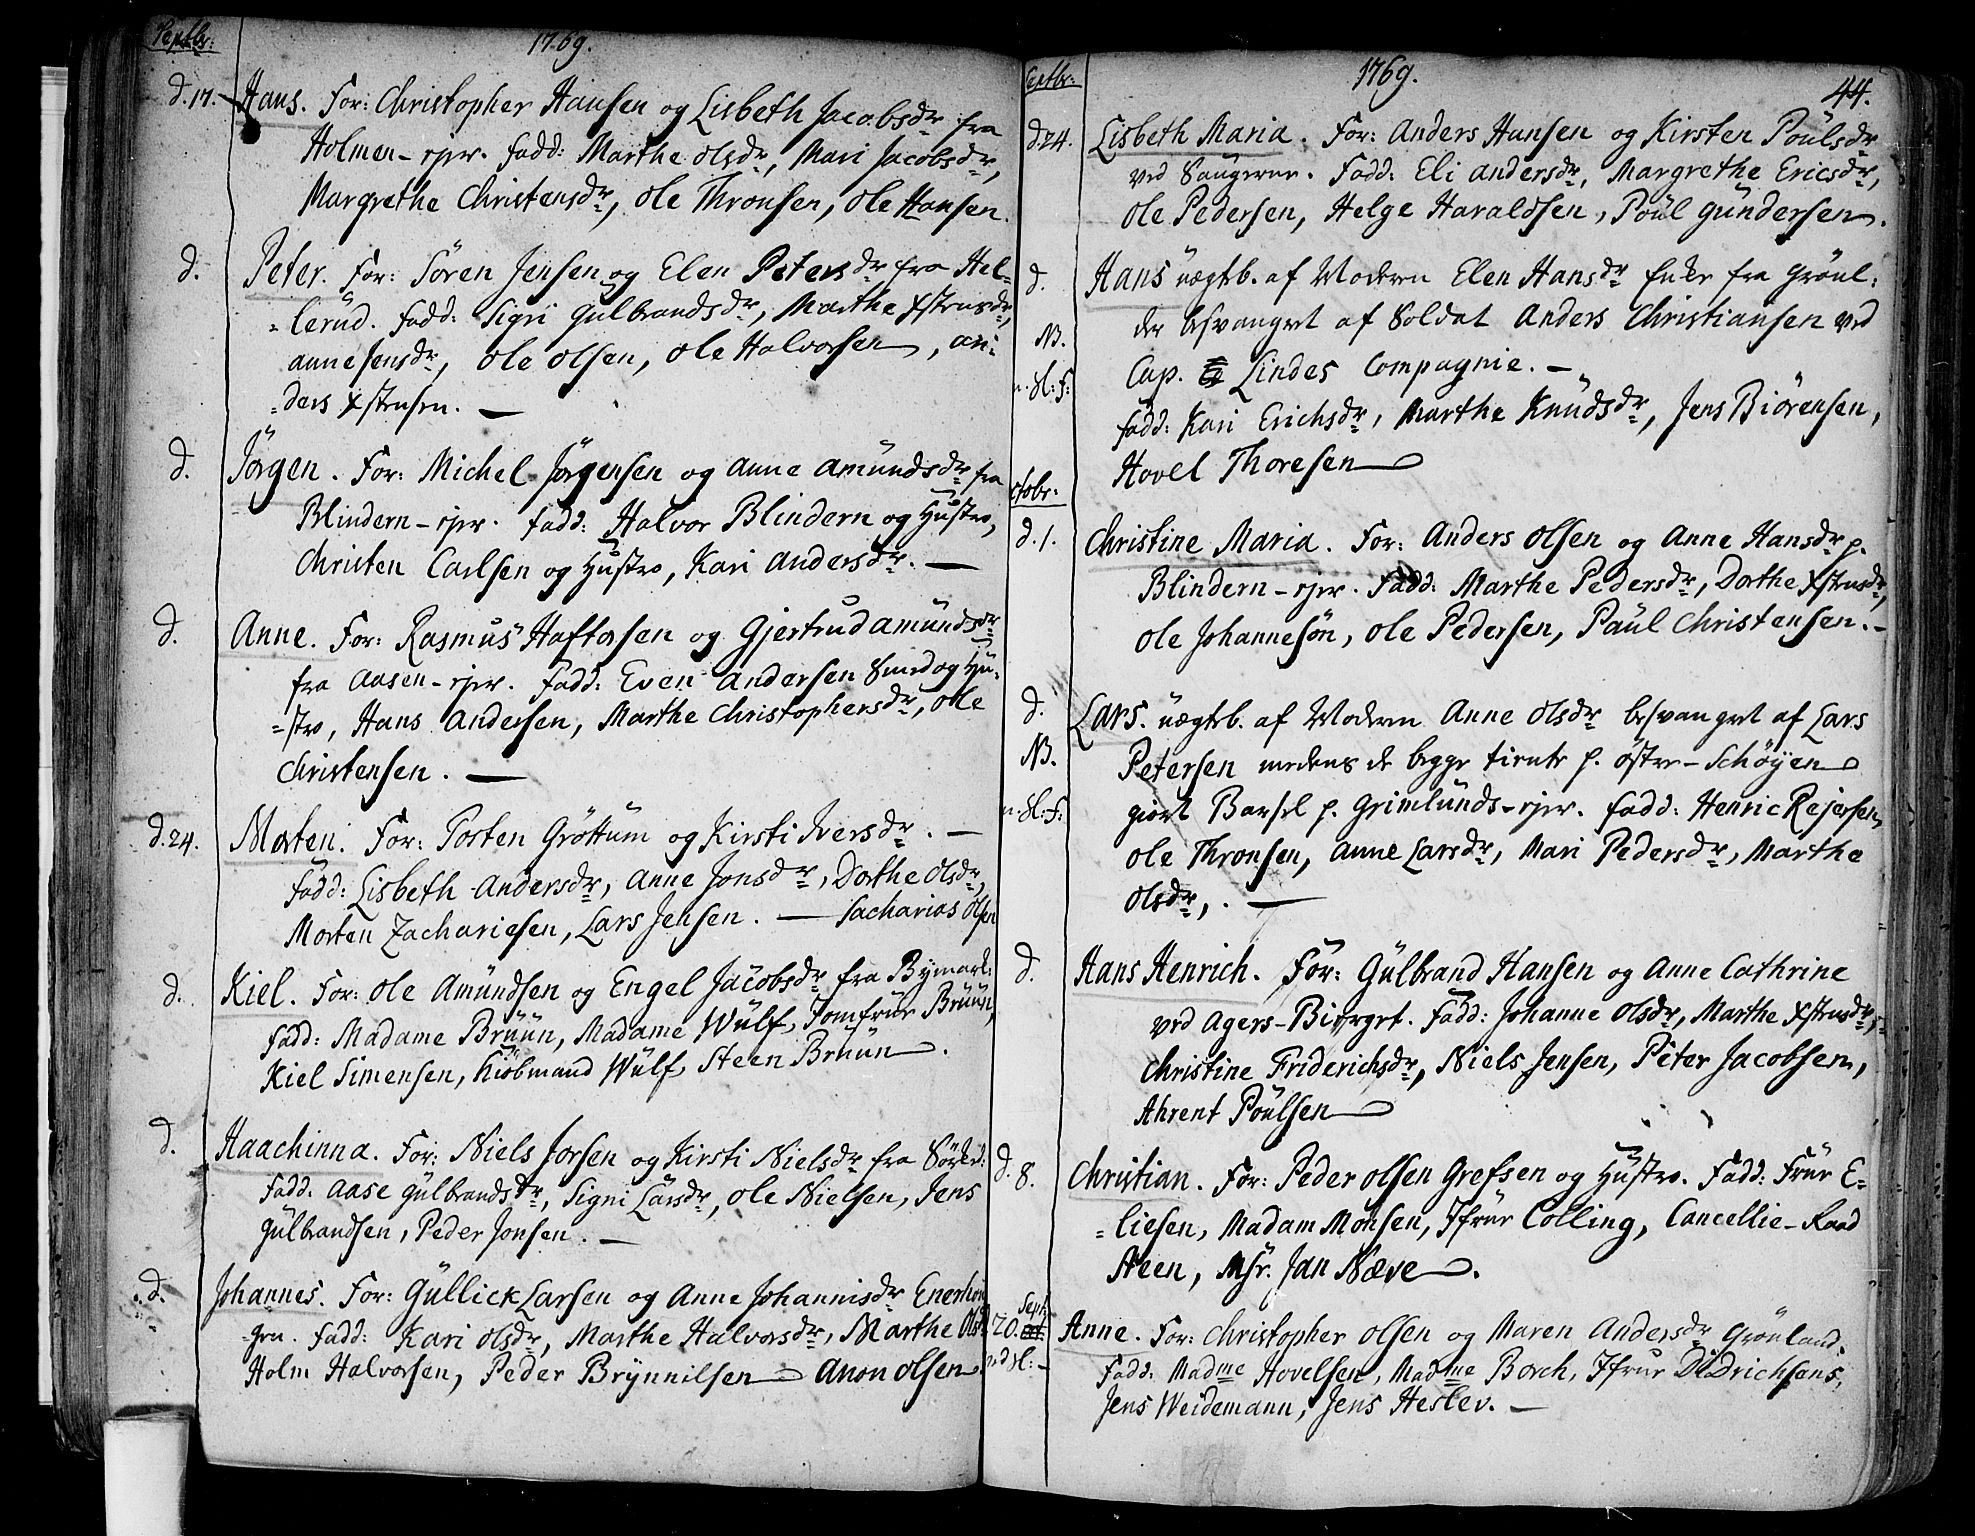 Septbr:
1769.
d. 17. Hans. For: Christopher Hansen og Lisbeth Jacobsdr fra
Holmen-ejer. Fadd: Marthe Olsdr, Mari Jacobsdr,
Margrethe Christensdr, Ole Thronsen, Ole Hansen.
d. Peter. For: Sören Jensen og Elen Petersdr fra Hel-
-lerud. Fadd: Sigri Gulbrandsdr, Marthe Xstensdr,
Anne Jensdr, Ole Olsen, Ole Halvorsen, An-
-ders Xstensen. —
d. Jörgen. For: Michel Jörgensen og Anne Amundsdr fra
Blindern-ejer. Fadd: Halvor Blindern og Hustro,
Christen Carlsen og Hustro, Kari Andersdr. —
d. Anne. For: Rasmus Haftorsen og Gjertrud Amundsdr
fra Aasen-ejer. Fadd: Even Andersen Smed og Hu-
-stro, Hans Andersen, Marthe Christophersdr, Ole
Christensen. —
d. 24. Morten. For: Torsten Gröttum og Kirsti Iversdr. —
Fadd: Lisbeth Andersdr, Anne Jonsdr, Dorthe Olsdr,
Morten Zachariesen, Lars Jensen. — Sacharias Olsen
d. Kiel. For: Ole Amundsen og Engel Jacobsdr fra Bymark:
Fadd: Madame Bruun, Madame Wulf, Jomfrue Bruun,
Kiel Simensen, Kiöbmand Wulf, Steen Bruun.
d. Haachinna. For: Niels Jorsen og Kirsti Nielsdr fra Sörked:
Fadd: Aase Gulbrandsdr, Signi Larsdr, Ole Nielsen, Jens
Gulbrandsen, Peder Jonsen. —
d. Johannes. For: Gullick Larsen og Anne Johannisdr Enerhou-
-gen. Fadd: Kari Olsdr, Marthe Halvorsdr, Marthe Olsdr
Holm Halvorsen, Peder Brynnilsen Anon Olsen.
Septbr:
1769.
44.
d. 24. Lisbeth Maria. For: Anders Hansen og Kirsten Poulsdr
ved Saugerne. Fadd: Eli Andersdr, Margrethe Ericsdr,
Ole Pedersen, Helge Haraldsen, Poul Gundersen.
d. Hans uægteb. af Modern Elen Hansdr Enke fra Grönl:
NB. der besvangret af Soldat Anders Christiansen ved
Cap. Lindes Compagnie. —
Fadd: Kari Erichsdr, Marthe Knudsdr, Jens Biörensen,
Hovel Thoresen
ctobr:
d. 1. Christine Maria. For: Anders Olsen og Anne Hansdr p.
Blindern-ejer. Fadd: Marthe Pedersdr, Dorthe Xstensdr,
Ole Johannesön, Ole Pedersen, Paul Christensen. -
d. Lars. uægteb. af Modern Anne Olsdr besvangret af Lars
NB. Petersen medens de begge tiente p. Östre-Schöyen
giort Barsel p. Grimlunds-ejer. Fadd: Henric Rejersen,
Ole Thronsen, Anne Larsdr, Mari Pedersdr, Marthe
Olsdr, . —
d. Hans Henrich. For: Gulbrand Hansen og Anne Cathrine
ved Agers-Bierget. Fadd: Johanne Olsdr, Marthe Xstensdr,
Christine Friderichsdr, Niels Jensen, Peter Jacobsen,
Ahrent Poulsen
d. 8. Christian. For: Peder Olsen Grefsen og Hustro. Fadd: Frue E-
-liesen, Madam Monsen, Jfrue Colling, Cancellie-Raad
Steen, Msr. Jan Næve.
20. Sept: Anne. For: Christopher Olsen og Maren Andersdr Grönland.
Fadd: Madme Hovelsen, Madme Borch, Jfrue Didrichsens,
Jens Weidemann, Jens Heslev. —